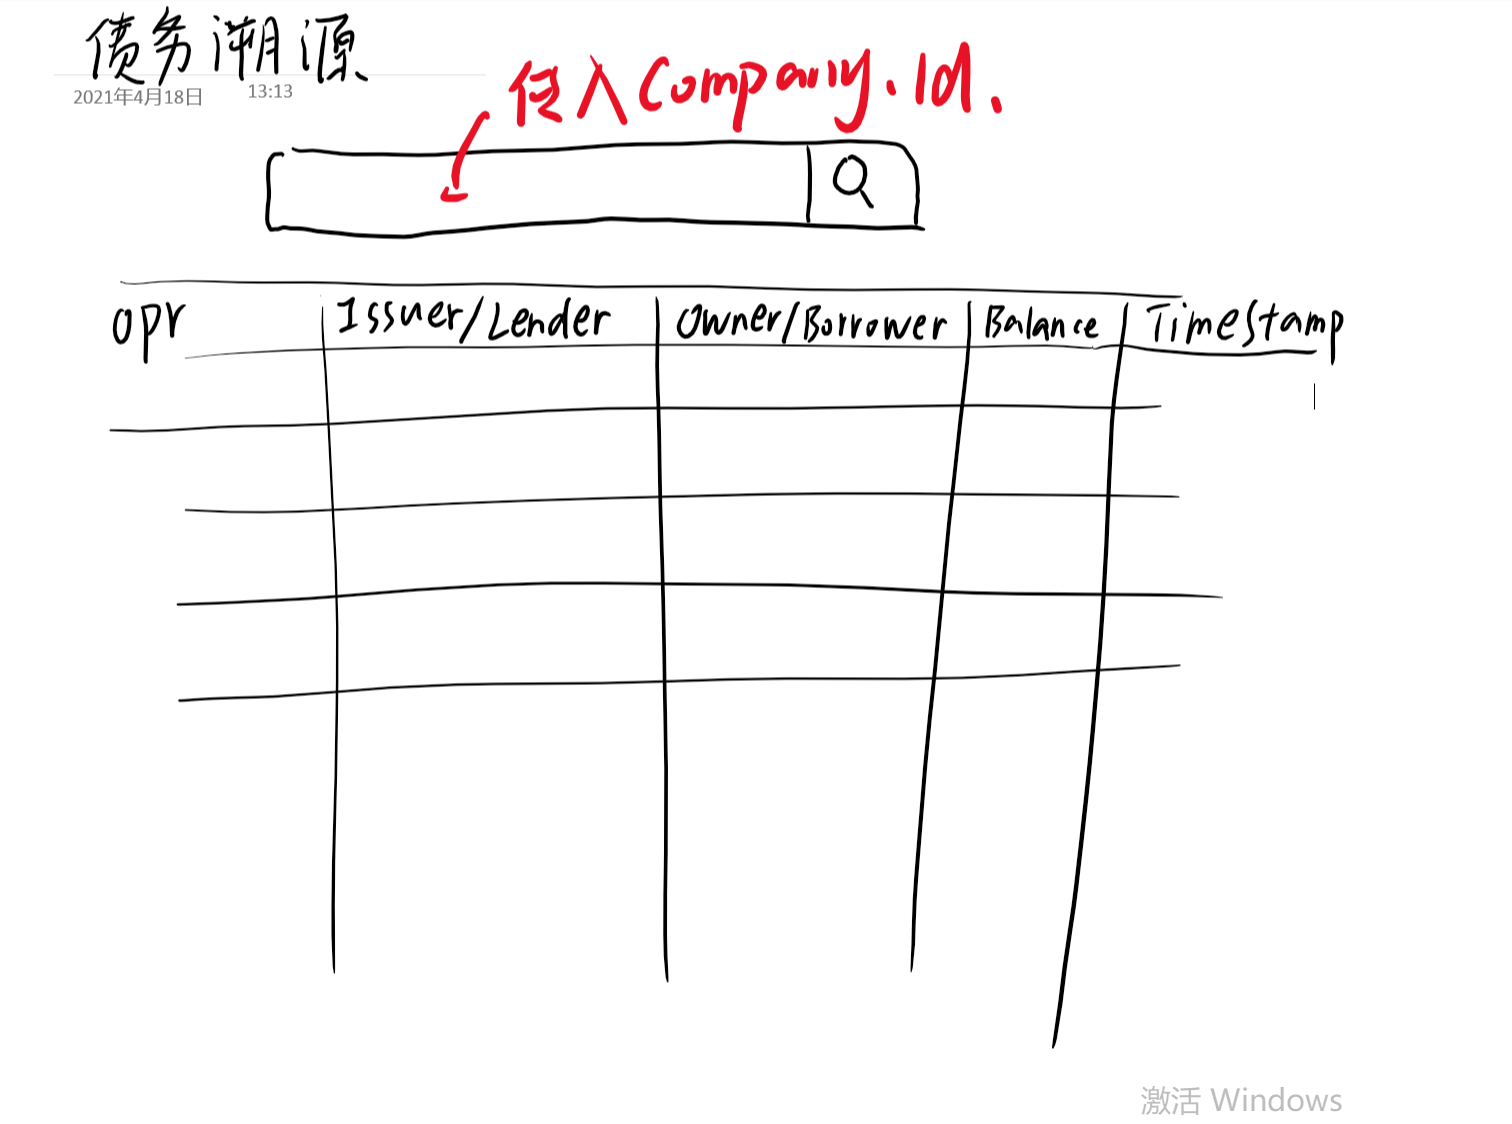 债务溯源
2021年4月18日 13:13
传入Company.Id.
opr Issuer/Lender Owner/Borrower Balance Timestamp
激活 Windows